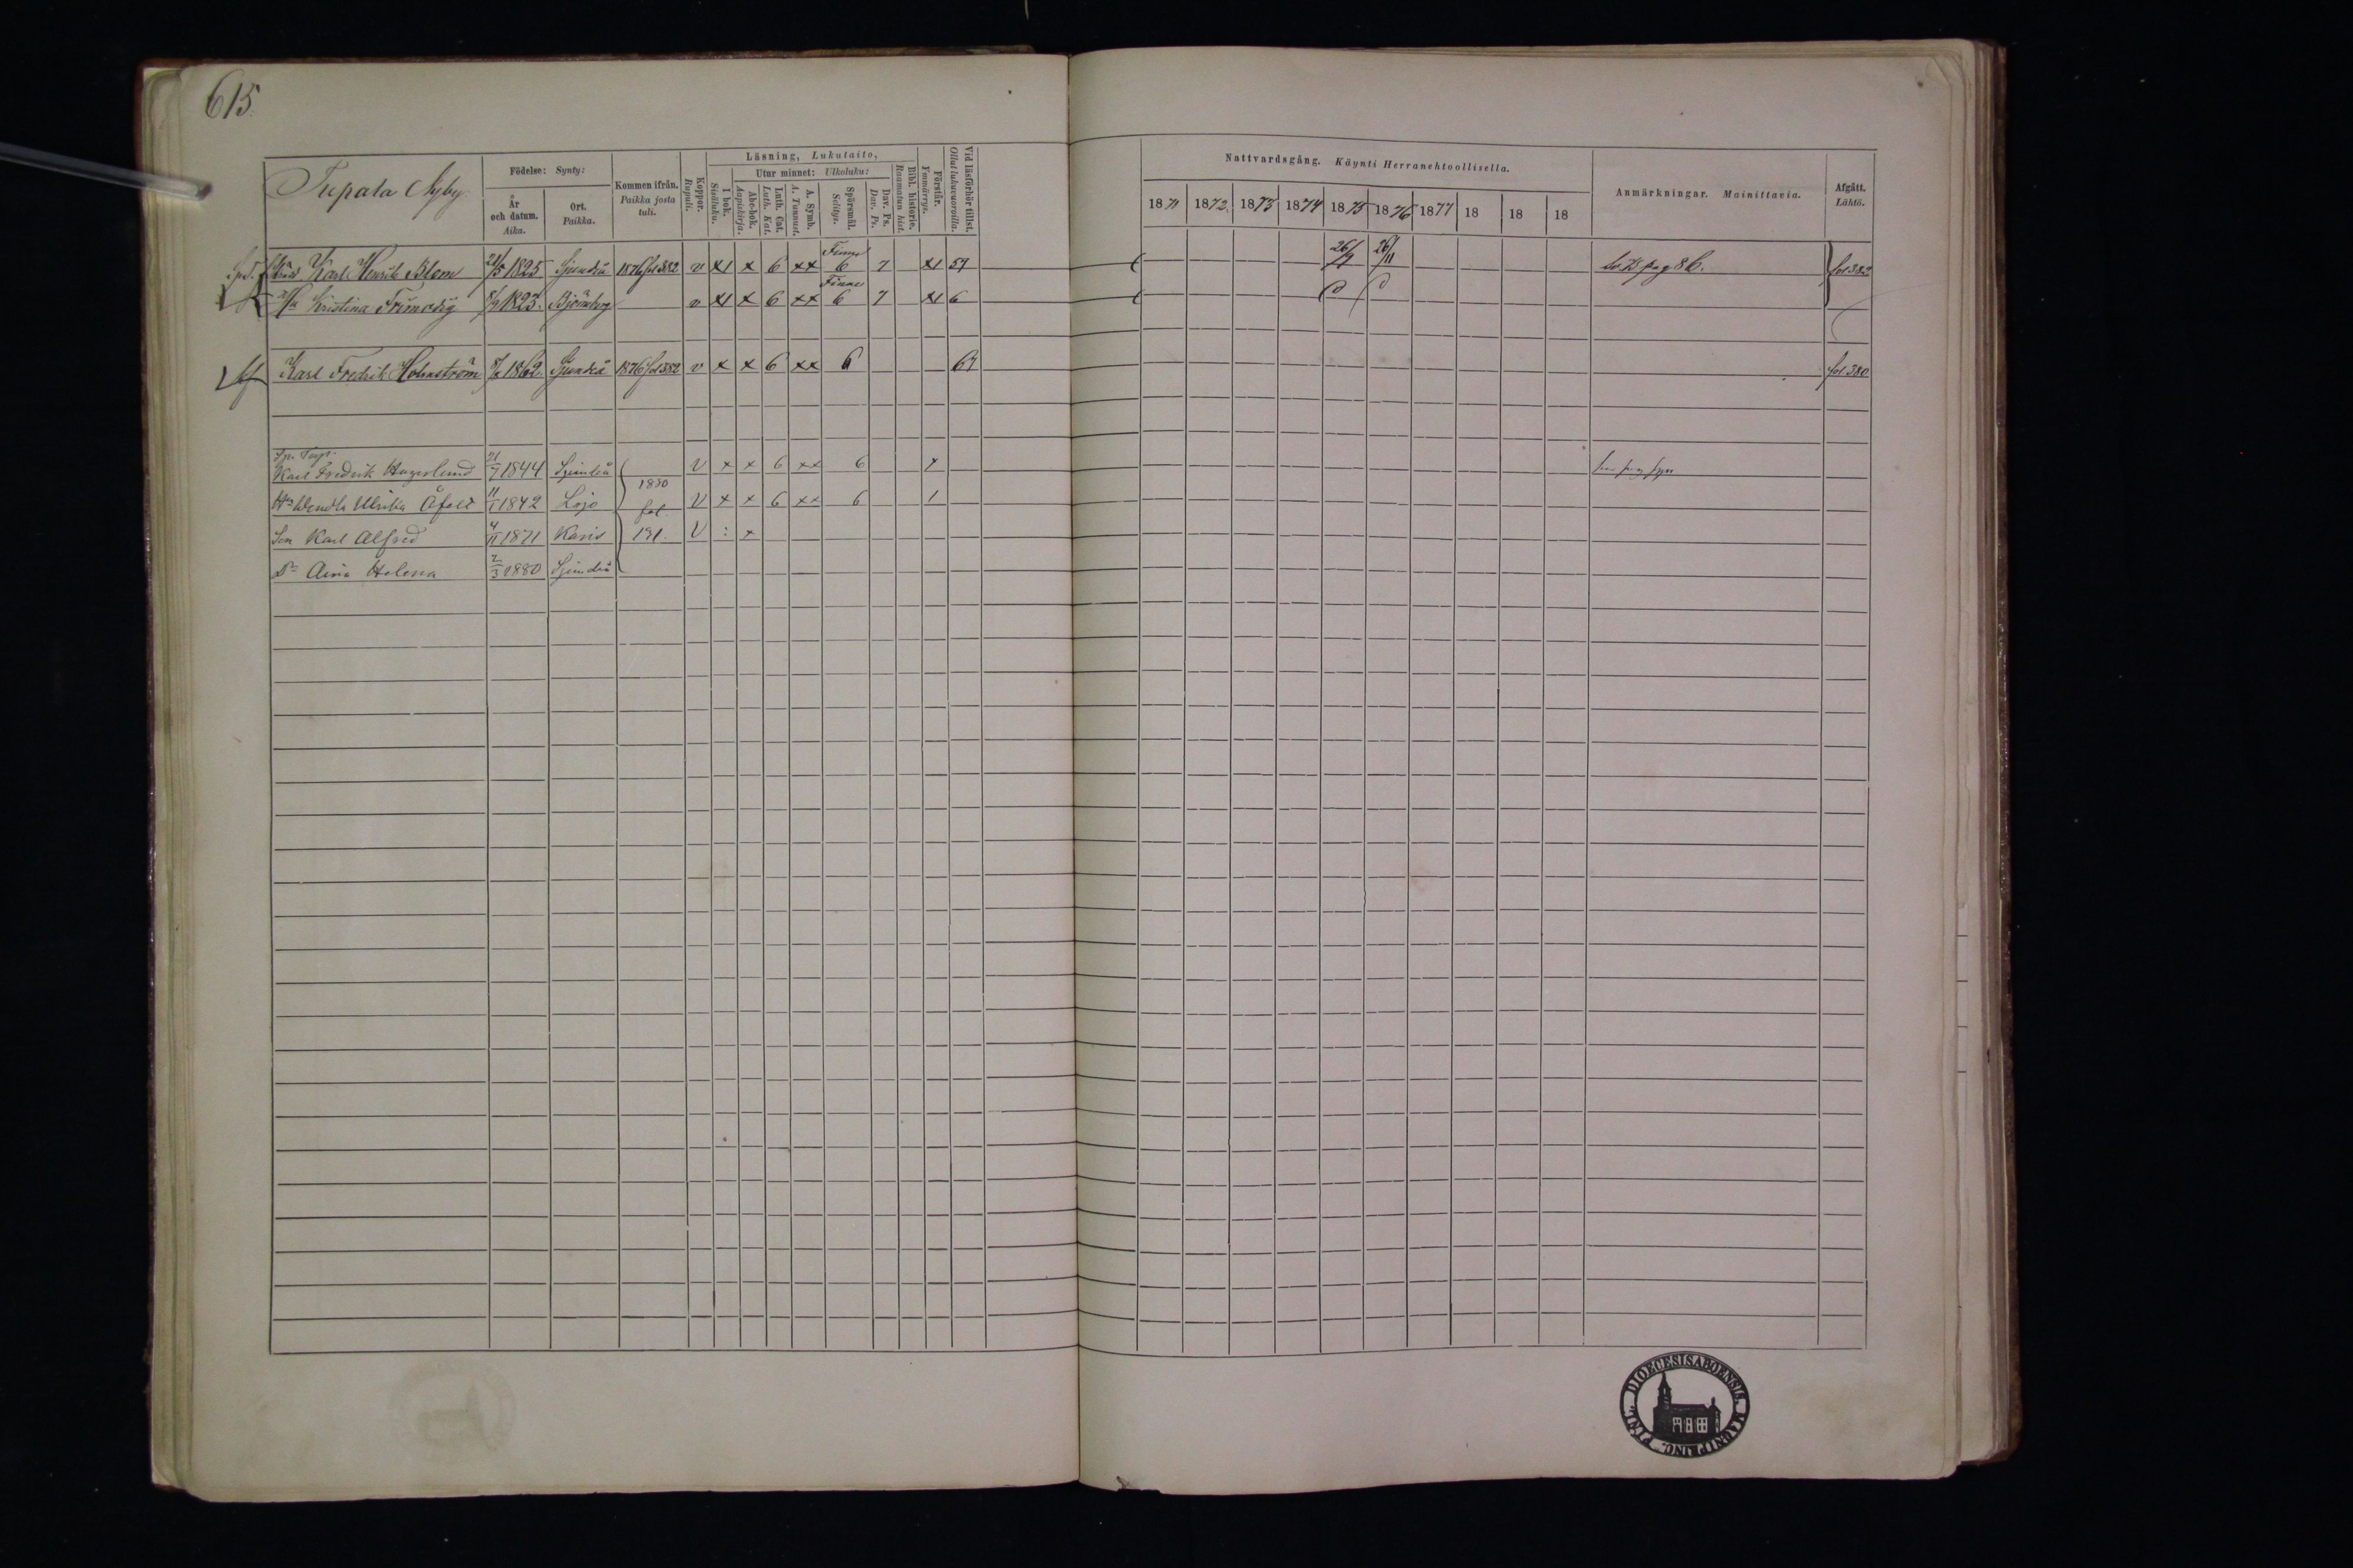 615
Tupala Nyby
Födelse: Synty:
År och datum. Aika.
Ort. Paikka.
Kommen ifrån. Paikka josta tuli.
Koppor. Rupuli.
Läsning, Lukutaito,
I bok. Sisäluku.
Utur minnet: Ulkoluku:
Abc-bok. Aapiskirja.
Luth. Cat. Luth. Kat.
A. Symb. A. Tunnust.
Spörsmål. Selitys.
Dav. Ps. Dav. Ps.
Bibl. historie. Raamatun hist.
Förstår. Ymmärrys.
Vid läsförhör tillst. Ollut lukuvuoroilla.
Nattvardsgång. Käynti Herranehtoollisella.
1871 1872 1873 1874 1875 1876 1877 18 18 18
Anmärkningar. Mainittavia.
Afgått. Lähtö.
Karl Henrik Blom 21/5 1825 Sjundeå 1876 fol 382 v x1 x 6 xx Finne 6 7 x1 57 26/11 pag 86. fol 382
Kristina Frimodig 8/9 1823. Björneborg v x1 x 6 xx Finne 6 7 x1 6
Karl Fredrik Holmström 1862 Sjundeå 1876 fol 382 v x x 6 xx 6 67 fol 380
Karl Fredrik Hagerlund 21/7 1844 Sjundeå 1880 v x x 6 xx 6
Hu Wendla Ulrika Åfelt 11/1 1842 Lojo fol. v x x 6 xx 6 1
Son Karl Alfred 4/11 1871 Karis 191. v : x
Dr Aina Helena 2/3 1880 Sjundeå
DIOECESIS ABOENSIS